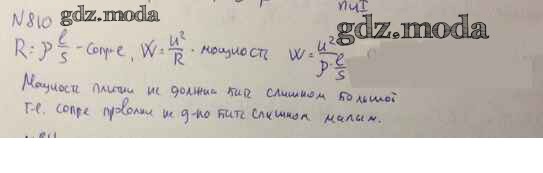 пиI
N810 gdz.moda gdz.moda
R = ρ l/s - сопр-е, W = u²/R - мощность W = u²/(ρ · l/s)
Мощность плитки не должна быть слишком большой
т.е. сопр-е провол-ки не д-но быть слишком малым.